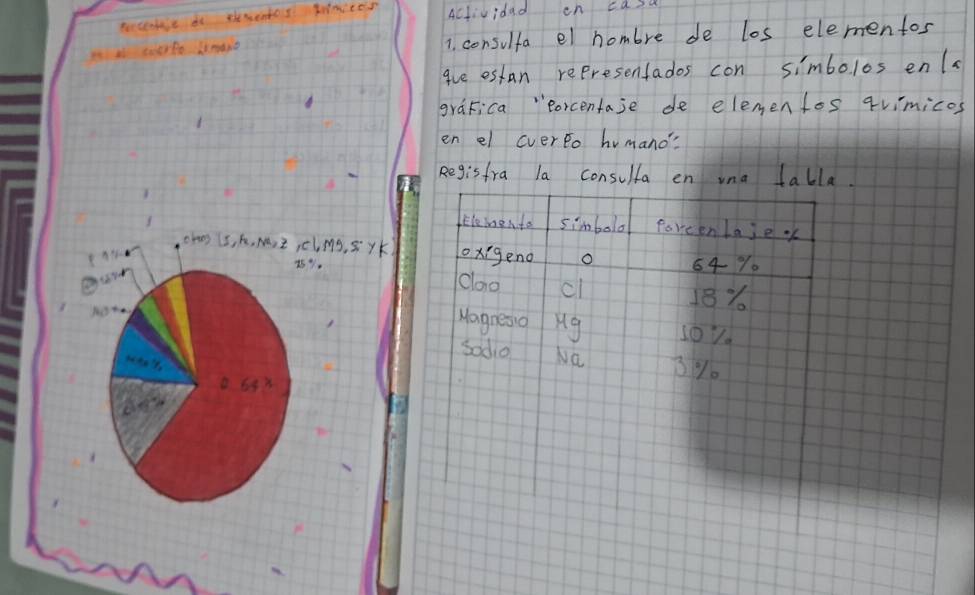 Porcentaje de elementos químicos
en el cuerpo humano
otros (I, Fe, Na, Z, Cl, Mg, S y K
O 64%
Actividad en casa
1. consulta el nombre de los elementos
que estan representados con símbolos en la
gráfica "Porcentaje de elementos químicos
en el cuerpo humano".
Registra la consulta en una tabla.
Elemento símbolo Porcentaje %
oxígeno O 64 %
Cloro Cl 18 %
Magnesio Mg 10 %
Sodio Na 3 %